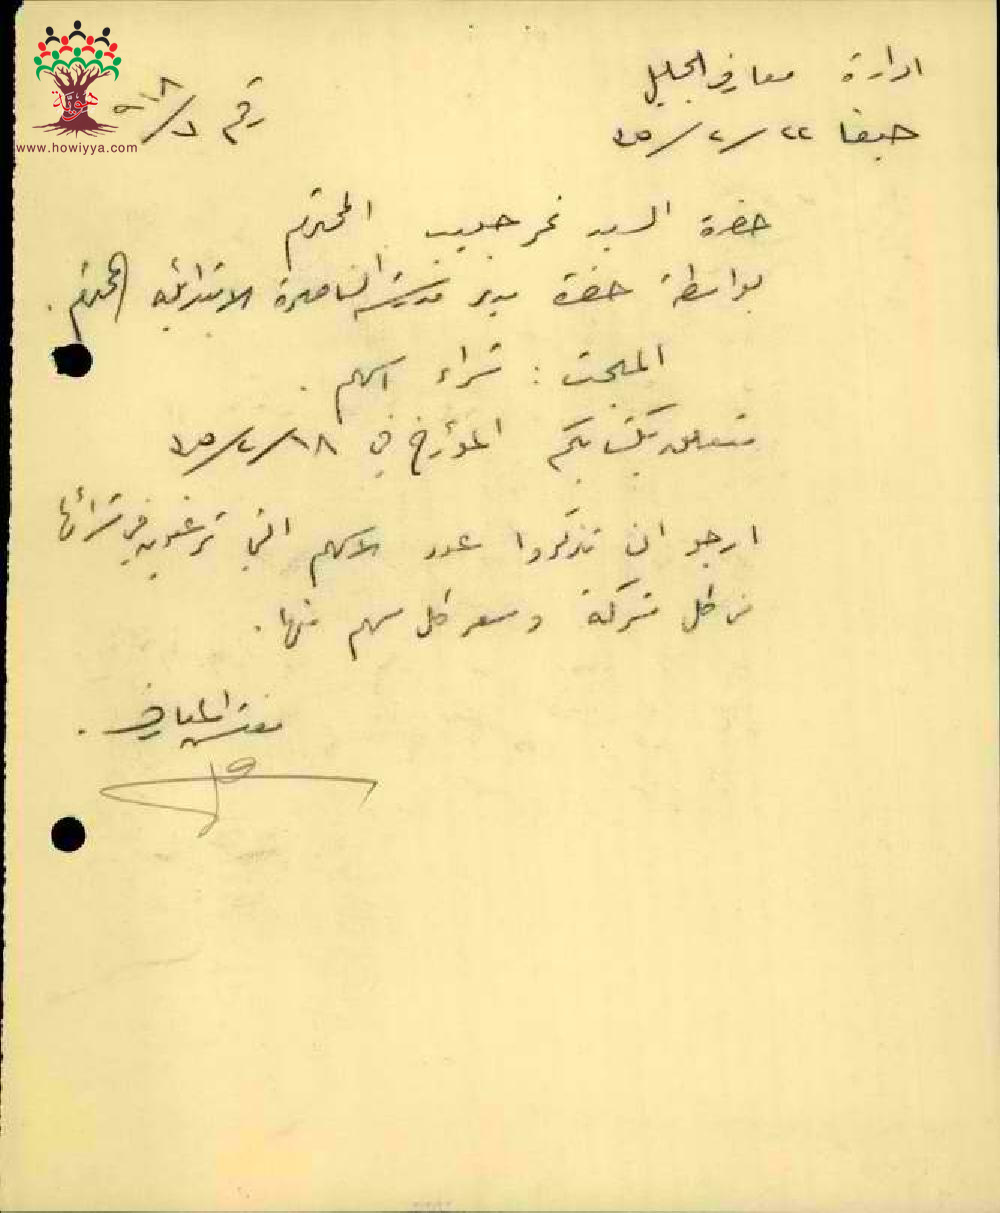 ادارة معارف الجليل
حيفا ٢٢/٢/٣٥
رقم
هوية
www.howiyya.com
حضرة السيد نمر حبيب المحترم
بواسطة حضرة مدير مدرسة الناصرة الابتدائية المحترم.
المبحث : شراء اسهم .
متعلق بكتابكم المؤرخ في ١٨/٢/٣٥
ارجو ان تذكروا عدد الاسهم التي ترغبون في شرائها
من كل شركة وسعر كل سهم منها .
مفتش المعارف .